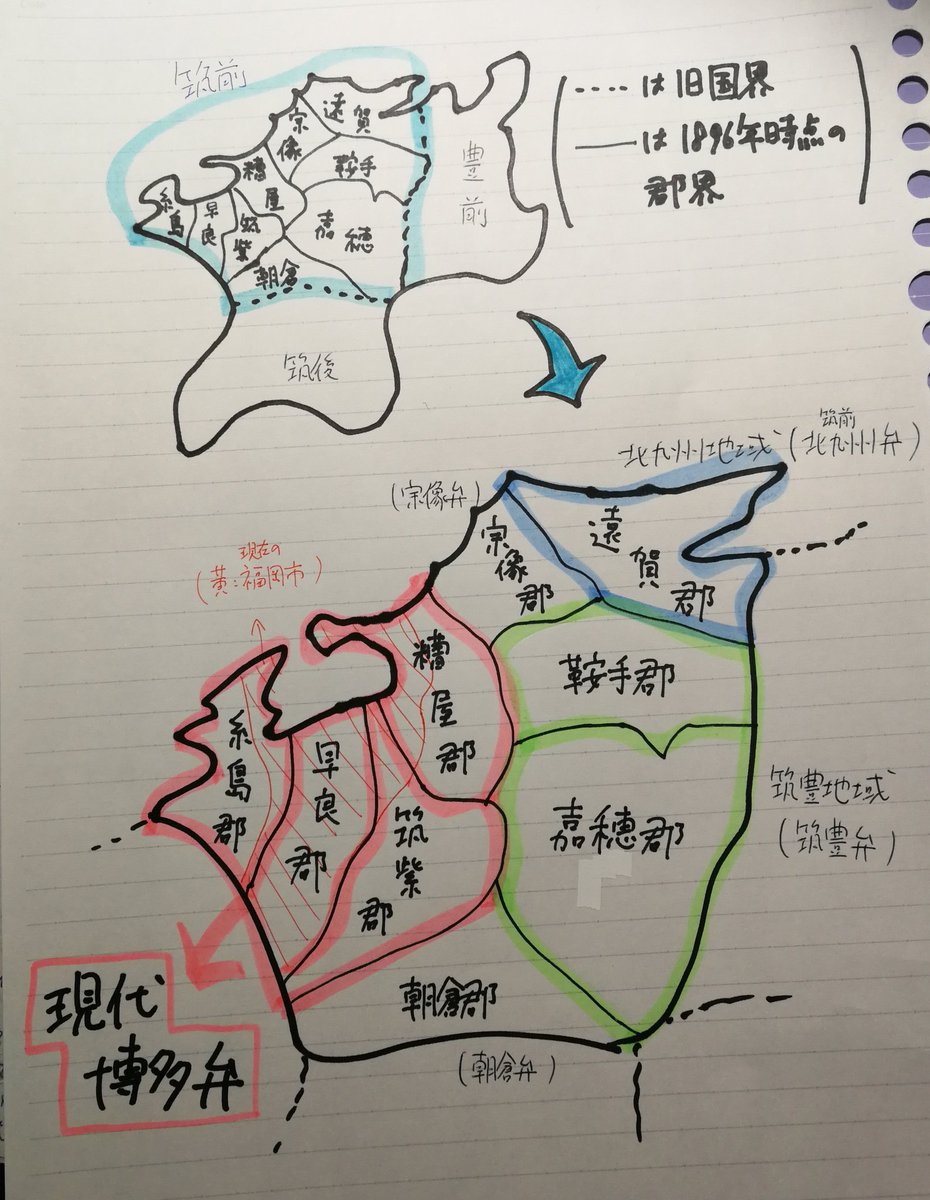 筑前
豊前
筑後
遠賀
宗像
鞍手
糟屋
嘉穂
糸島
早良
筑紫
朝倉
‥‥は旧国界
――は1896年時点の
郡界
北九州地域
筑前
(北九州弁)
(宗像弁)
現在の
(黄:福岡市)
遠賀郡
宗像郡
糟屋郡
鞍手郡
糸島郡
早良郡
筑紫郡
嘉穂郡
筑豊地域
(筑豊弁)
朝倉郡
(朝倉弁)
現代
博多弁